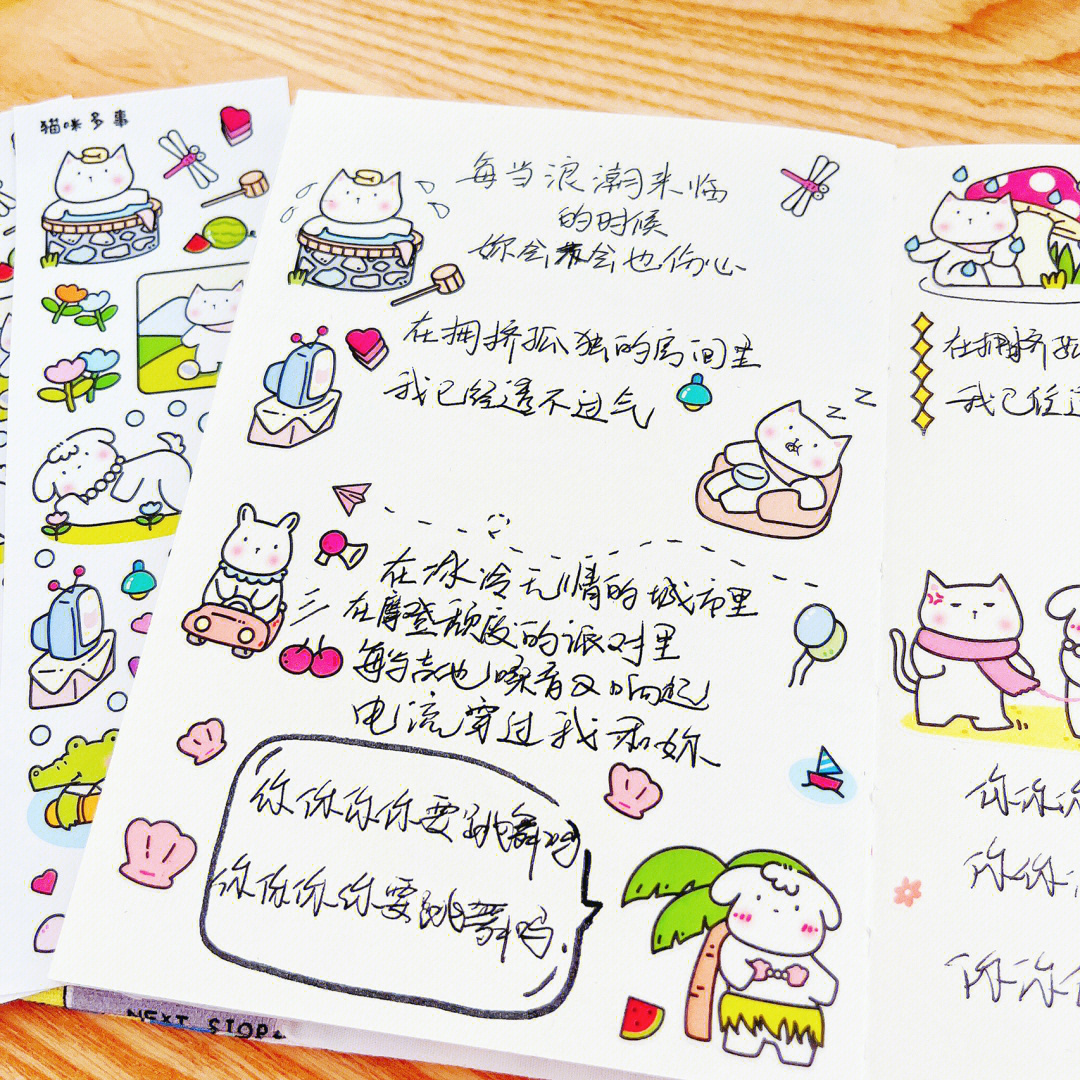 猫咪多事
每当浪潮来临
的时候
妳会不会也伤心
在拥挤孤独的房间里
我已经透不过气
z z
在冰冷无情的城市里
在摩登颓废的派对里
每当吉他噪音又响起
电流穿过我和妳
你你你你要跳舞吗
你你你你要跳舞吗.
NEXT STOP
在拥挤孤
我已经透
你你你
你你
你你